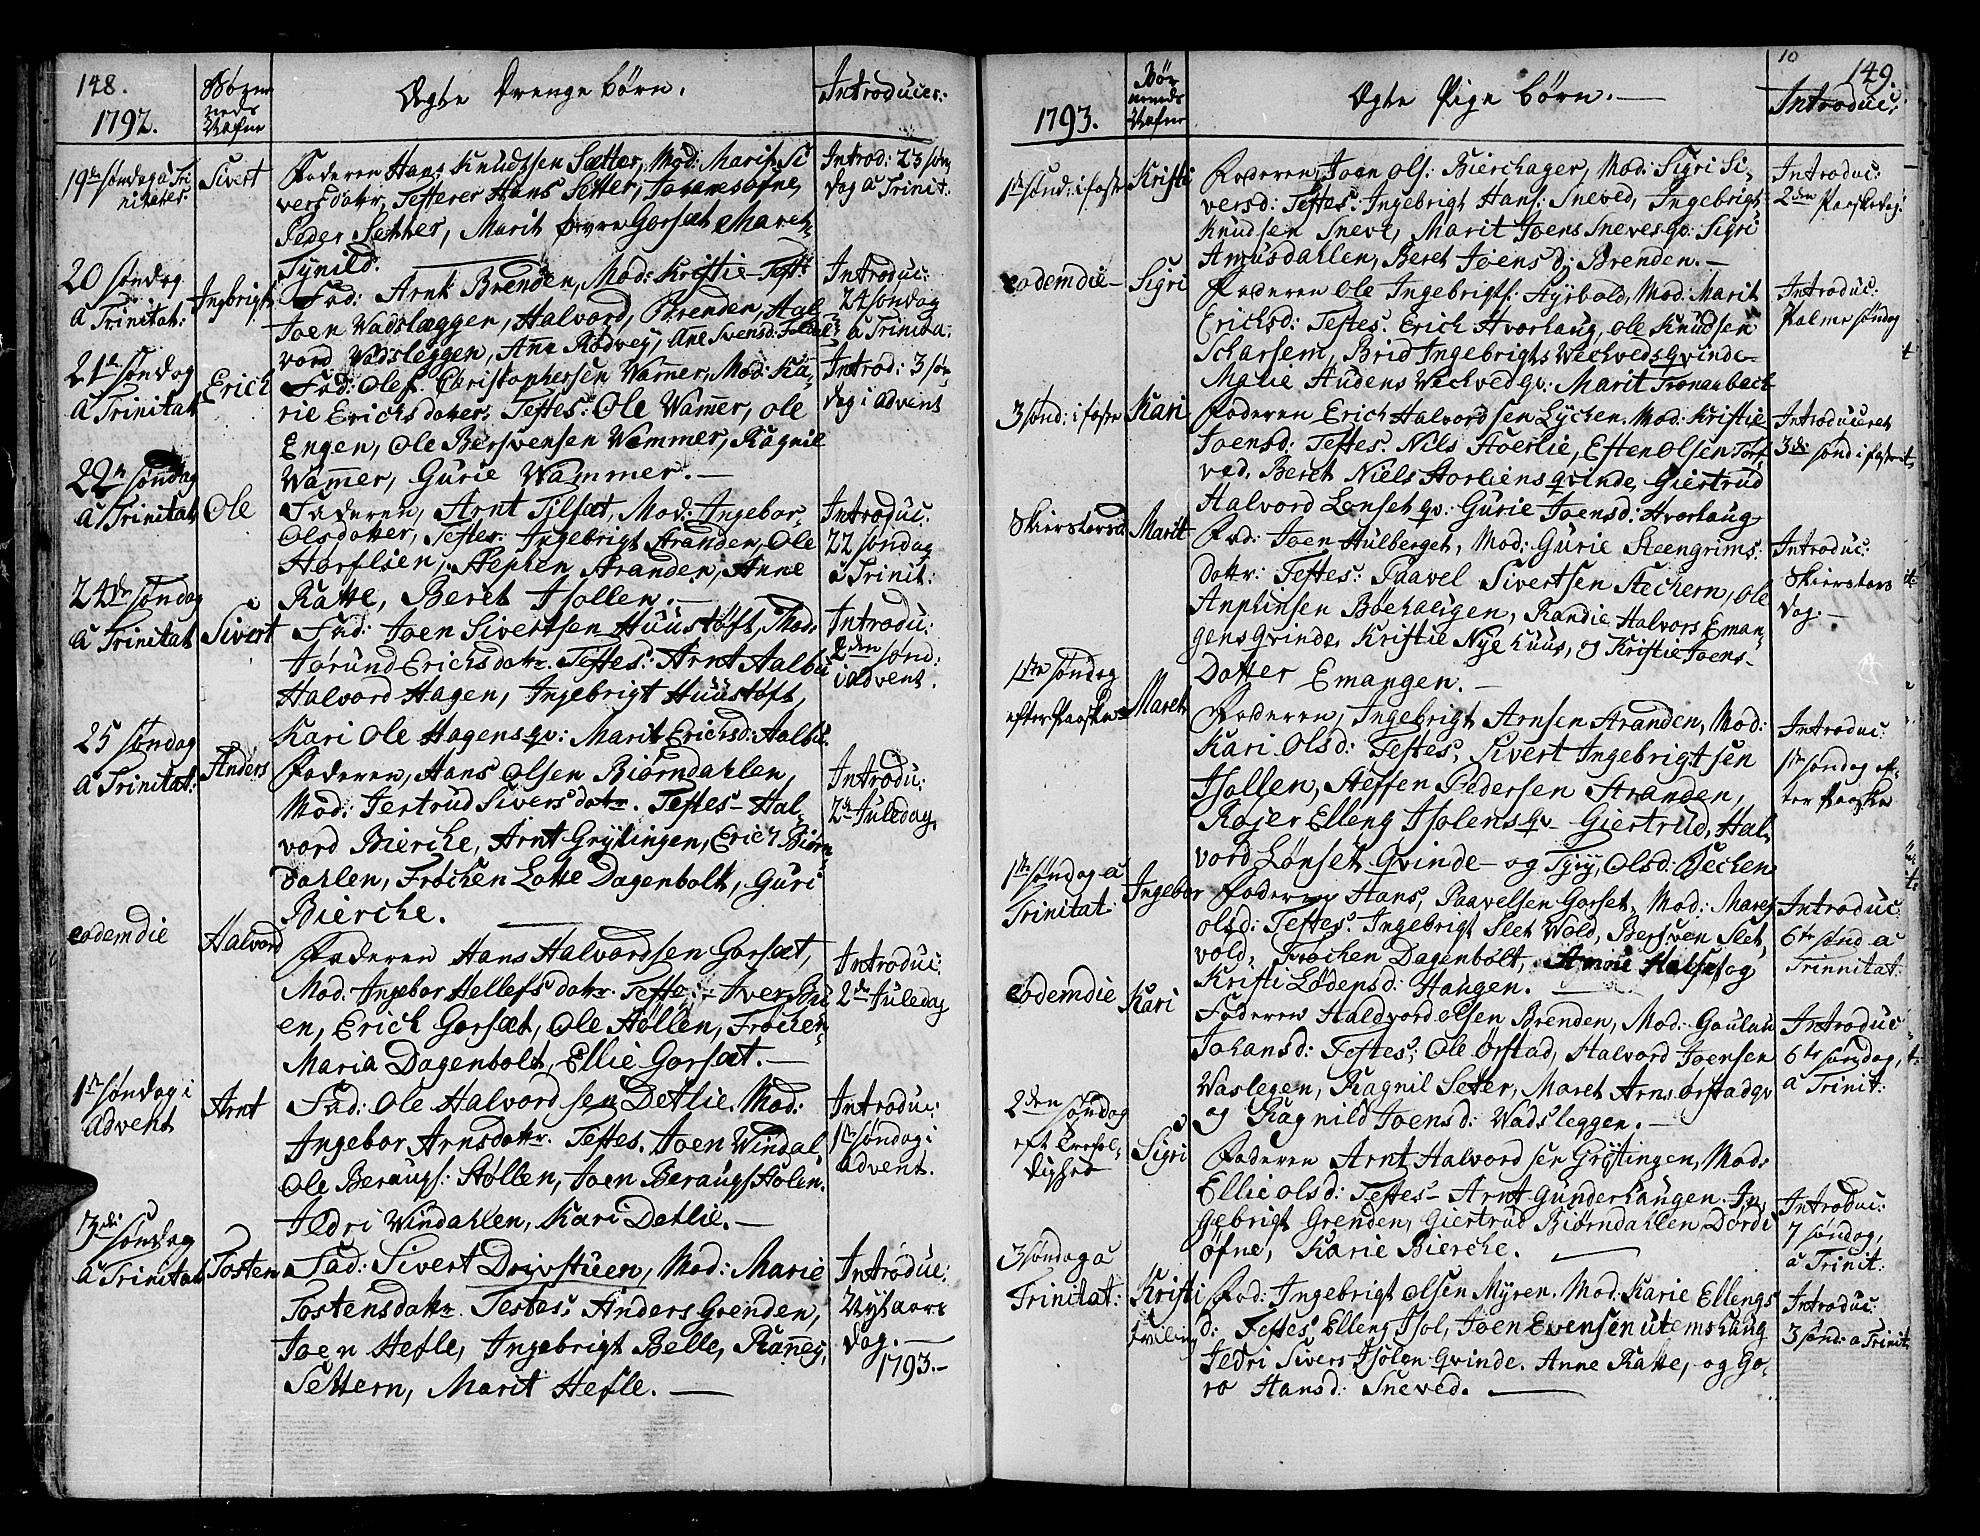 148.
1792.
Børne
neds
Nafne
Ægte Drenge børn.
Introduce:
19de søndag a Tri
nitates.
Sivert
Faderen Hans Knudtsen Sætter, Mod: Marit Si
versdatr, Testerer Hans Setter,
Peder Setter, Marit Gorset Maret
Tynild.
Introd: 23 søn
dag a Trinit:
20 søndag
a Trinitat:
Ingbrigt
Fad: Arnt Brenden, Mod: Kristie Test:
Joen Wadslæggen, Halvord Brenden, Hal
vord Wadsleggen, Ane Rødvey, Ane Svensd:
Introduc:
24 søndag
a Trinita:
21de søndag
a Trinitat
Erich
Fad: Ole Christophersen Wamer, Mod: Ka-
rie Erichsdatter, Testes: Ole Wamer, Ole
Engen, Ole Berswensen Wammer, Ragnil
Wamer, Gurie Wammer.
Introd: 3 søn
dag i Advent
22de søndag
a Trinitat
Ole
Faderen, Arnt Tilset, Mod: Ingebor
Olsdatter, Testes: Ingebrigt Stranden, Ole
Stephen Stranden, Anne
Katte, Beret Isollen.
Introduc:
22 søndag
a Trinit:
24de søndag
a Trinitat
Sivert
Fad: Joen Sivertsen Huustoft, Mod:
Jorund Erichsdatr. Testes: Arnt Aalbu
Halvord Hagen, Ingebrigt Huustoft,
Kari Ole Hagens qv: Marit Erichsd: Aalbu.
Introdu:
2den sønd:
i Advent.
25 søndag
a Trinitat:
Anders
Faderen, Hans Olsen Biørndahlen,
Mod: Jertrud Siversdatr. Testes- Hal-
vord Bierche, Arnt Grytingen, Erich Biørn
dahlen, Frøchen Lotte Dagenbolt, Guri
Bierche.
Introdu:
2de Juledag.
eodemdie
Halvord
Faderen Hans Halvordsen Gorset,
Mod. Ingebor Hellefsdatr. Testes: Iver
en, Erich Gorset, Ole Hollen, Frøchen
Maria Dagenbolt, Ellie Gorset.
Introduc:
2de Juledag
1ste søndag i
Advent
Arnt
Fad: Ole Halvordsen Detlie. Mod:
Ingebor Arnsdatr. Testes. Joen Windal,
Ole Beraugs: Hollen, Joen Beraugs Holen.
Jldri Windahlen, Kari Detlie.
Introduc:
1ste søndag i
Advent.
3de søndag
a Trinitat
Tosten
Fad: Sivert Drivstuen, Mod: Marie
Tostensdatr. Testes: Anders Grenden,
Joen Hefle, Ingebrigt Belle, Raney
Settern, Marit Hefle.
Introduc:
Nytaars
dag.
1793.
10
149.
1793.
Bør
nenes
Nafne
Ægte Pige børn.
Introduc:
1ste sønd: i faste
Kristi
Faderen, Joen Ols: Bierchager, Mod: Sigri Si-
versd: Testes: Ingebrigt Hans: Sneved, Ingebrigt
Knudsen Sneve, Marit Joens Sneves qv: Sigri
Amusdahlen, Beret Joensd: Brenden.
Introduc:
2den Paaskedag:
eodemdie
Sigri
Faderen Ole Ingebrigts: Hyrbold, Mod: Marit
Erichsd: Testes: Erich Hvorhaug, Ole Knudsen
Scharsem, Brid Ingebrigts Wechveds Qvinde
Malie Audens Wechved qv: Marit Tronanbach
Introduc:
Palme søndag
3 sønd: i faste
Kari
Faderen Erich Halvordsen Lychen. Mod: Kristie
Joensd: Testes: Nils Hoerlie, Esten Olsen
ved, Beret Niels Horliens Qvinde, Giertrud
Halvord Lonset qv: Gurie Joensd: Hvorhaug
Introduceret
3de sønd i faste
Skierstorsd
Marit
Fad: Joen Hulberget, Mod: Gurie Steengrims:
datr: Testes: Paavel Sivertsen Stechern, Ole
Amphinsen Bøehaugen, Randie Halvors Eman-
gens Qvinde, Kristie Nye huus, og Kristie Joens-
Datter Emangen.
Introduc:
Skierstors
dag.
1ste søndag
efter Paaske
Maret
Faderen, Ingebrigt Arnsen Stranden, Mod:
Kari Olsd: Testes, Sivert Ingebrigtsen
Isollen, Steffen Pedersen Stranden,
Rojer Elleng Isolens qv Giertrud, Hal-
vord Lønset Qvinde- og Olsd: Bechen
Introduc:
1ste søndag ef-
ter Paaske
1ste søndag a
Trinitat:
Ingebor
Faderen Hans, Paavelsen Gorset, Mod: Maret
olsd: Testes: Ingebrigt Slet Wold, Berswen Slet
vold, Frøchen Dagenbolt, og
Kristi Lødensd: Haugen.
Introduc:
6te sønd a
Trinnitat:
eodemdie
Kari
Faderen Haldvord olsen Brenden, Mod: Goulau
Johansd: Testes; Ole Ørstad, Halvord Joensen
Waslegen, Ragnil Seter, Maret Arns ørstad qv
og Ragnild Joensd: Wadsleggen.
Introduc
6te søndag,
a Trinit:
2den søndag
eft Trefol-
dighed
Sigri
Faderen Arnt Halvordsen Grøtingen, Mod:
Ellie olsd: Testes- Arnt Gunderhaugen. In-
gebrigt Grenden, Giertrud Biørndahlen Dordi
Øfne, Karie Bierche.
Introduc:
7 søndag,
a Trinit:
3 søndag a
Trinitat:
Kristi
tviling
Fad: Ingebrigt Olsen Myren. Mod: Karie Ellengs
d: Testes, Elleng Isol, Joen Evensen utemshaug
Jldri Sivers Isolen Qvinde. Anne Katte, og Go-
ro Hansd: Sneved.
Introduc:
3 sønd: a Trinit